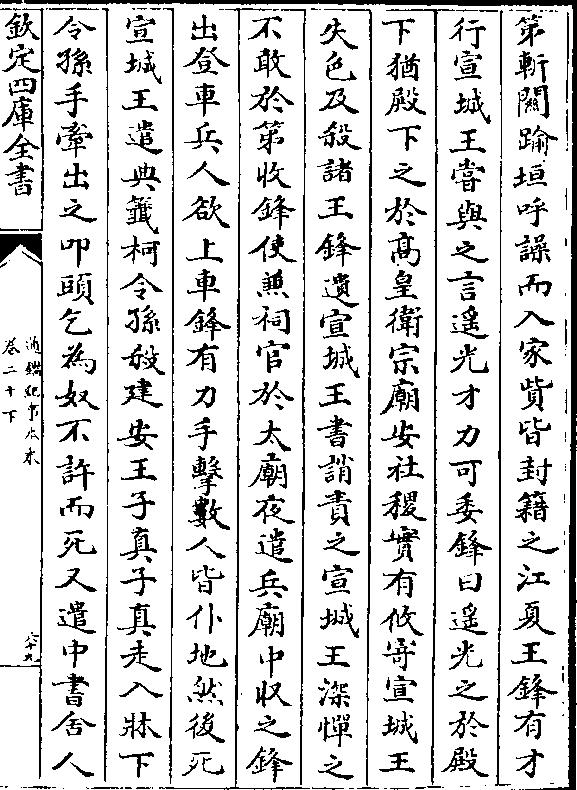 第斬關踰垣呼譟而入家貲皆封籍之江夏王鋒有才
行宣城王嘗與之言遥光才力可委鋒曰遥光之於殿
下猶殿下之於髙皇衛宗廟安社稷實有攸寄宣城王
失色及殺諸王鋒遺宣城王書誚責之宣城王深憚之
不敢於第收鋒使兼祠官於太廟夜遣兵廟中収之鋒
出登車兵人欲上車鋒有力手擊數人皆仆地然後死
宣城王遣典籖柯令孫殺建安王子真子真走入牀下
令孫手牽出之叩頭乞為奴不許而死又遣中書舍人
欽定四庫全書
通鑑紀事本末
卷二十下
六十九